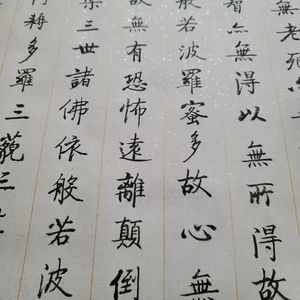 無老死
智亦無得以無所得故
般若波羅蜜多故心無
故無有恐怖遠離顛倒
槃三世諸佛依般若波
耨多羅三藐三